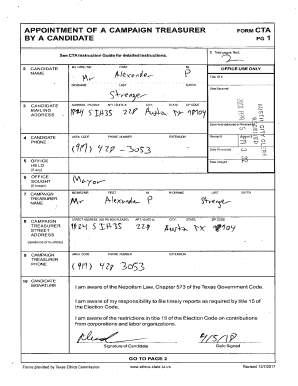 APPOINTMENT OF A CAMPAIGN TREASURER BY A CANDIDATE
FORM CTA
PG 1
See CTA Instruction Guide for detailed instructions.
1 Total pages filed:
2
2 CANDIDATE NAME
MS / MRS / MR FIRST MI
Mr Alexander P
NICKNAME LAST SUFFIX
Strenger
OFFICE USE ONLY
Filer ID #
Date Received
AUSTIN CITY CLERK
RECEIVED
3 CANDIDATE MAILING ADDRESS
ADDRESS / PO BOX; APT / SUITE #; CITY; STATE; ZIP CODE
1924 S IH35 228 Austin TX 78704
Date Hand-delivered or Postmarked
4 CANDIDATE PHONE
AREA CODE PHONE NUMBER EXTENSION
(917) 428-3053
Receipt # Amount $
Date Processed
5 OFFICE HELD (if any)
Date Imaged
6 OFFICE SOUGHT (if known)
Mayor
7 CAMPAIGN TREASURER NAME
MS / MRS / MR FIRST MI NICKNAME LAST SUFFIX
Mr Alexander P Strenger
8 CAMPAIGN TREASURER STREET ADDRESS
(residence or business)
STREET ADDRESS (NO PO BOX PLEASE); APT / SUITE #; CITY; STATE; ZIP CODE
1924 S IH35 228 Austin TX 78704
9 CAMPAIGN TREASURER PHONE
AREA CODE PHONE NUMBER EXTENSION
(917) 428 3053
10 CANDIDATE SIGNATURE
I am aware of the Nepotism Law, Chapter 573 of the Texas Government Code.
I am aware of my responsibility to file timely reports as required by title 15 of
the Election Code.
I am aware of the restrictions in title 15 of the Election Code on contributions
from corporations and labor organizations.
Signature of Candidate
Date Signed
GO TO PAGE 2
Forms provided by Texas Ethics Commission
www.ethics.state.tx.us
Revised 12/1/2017